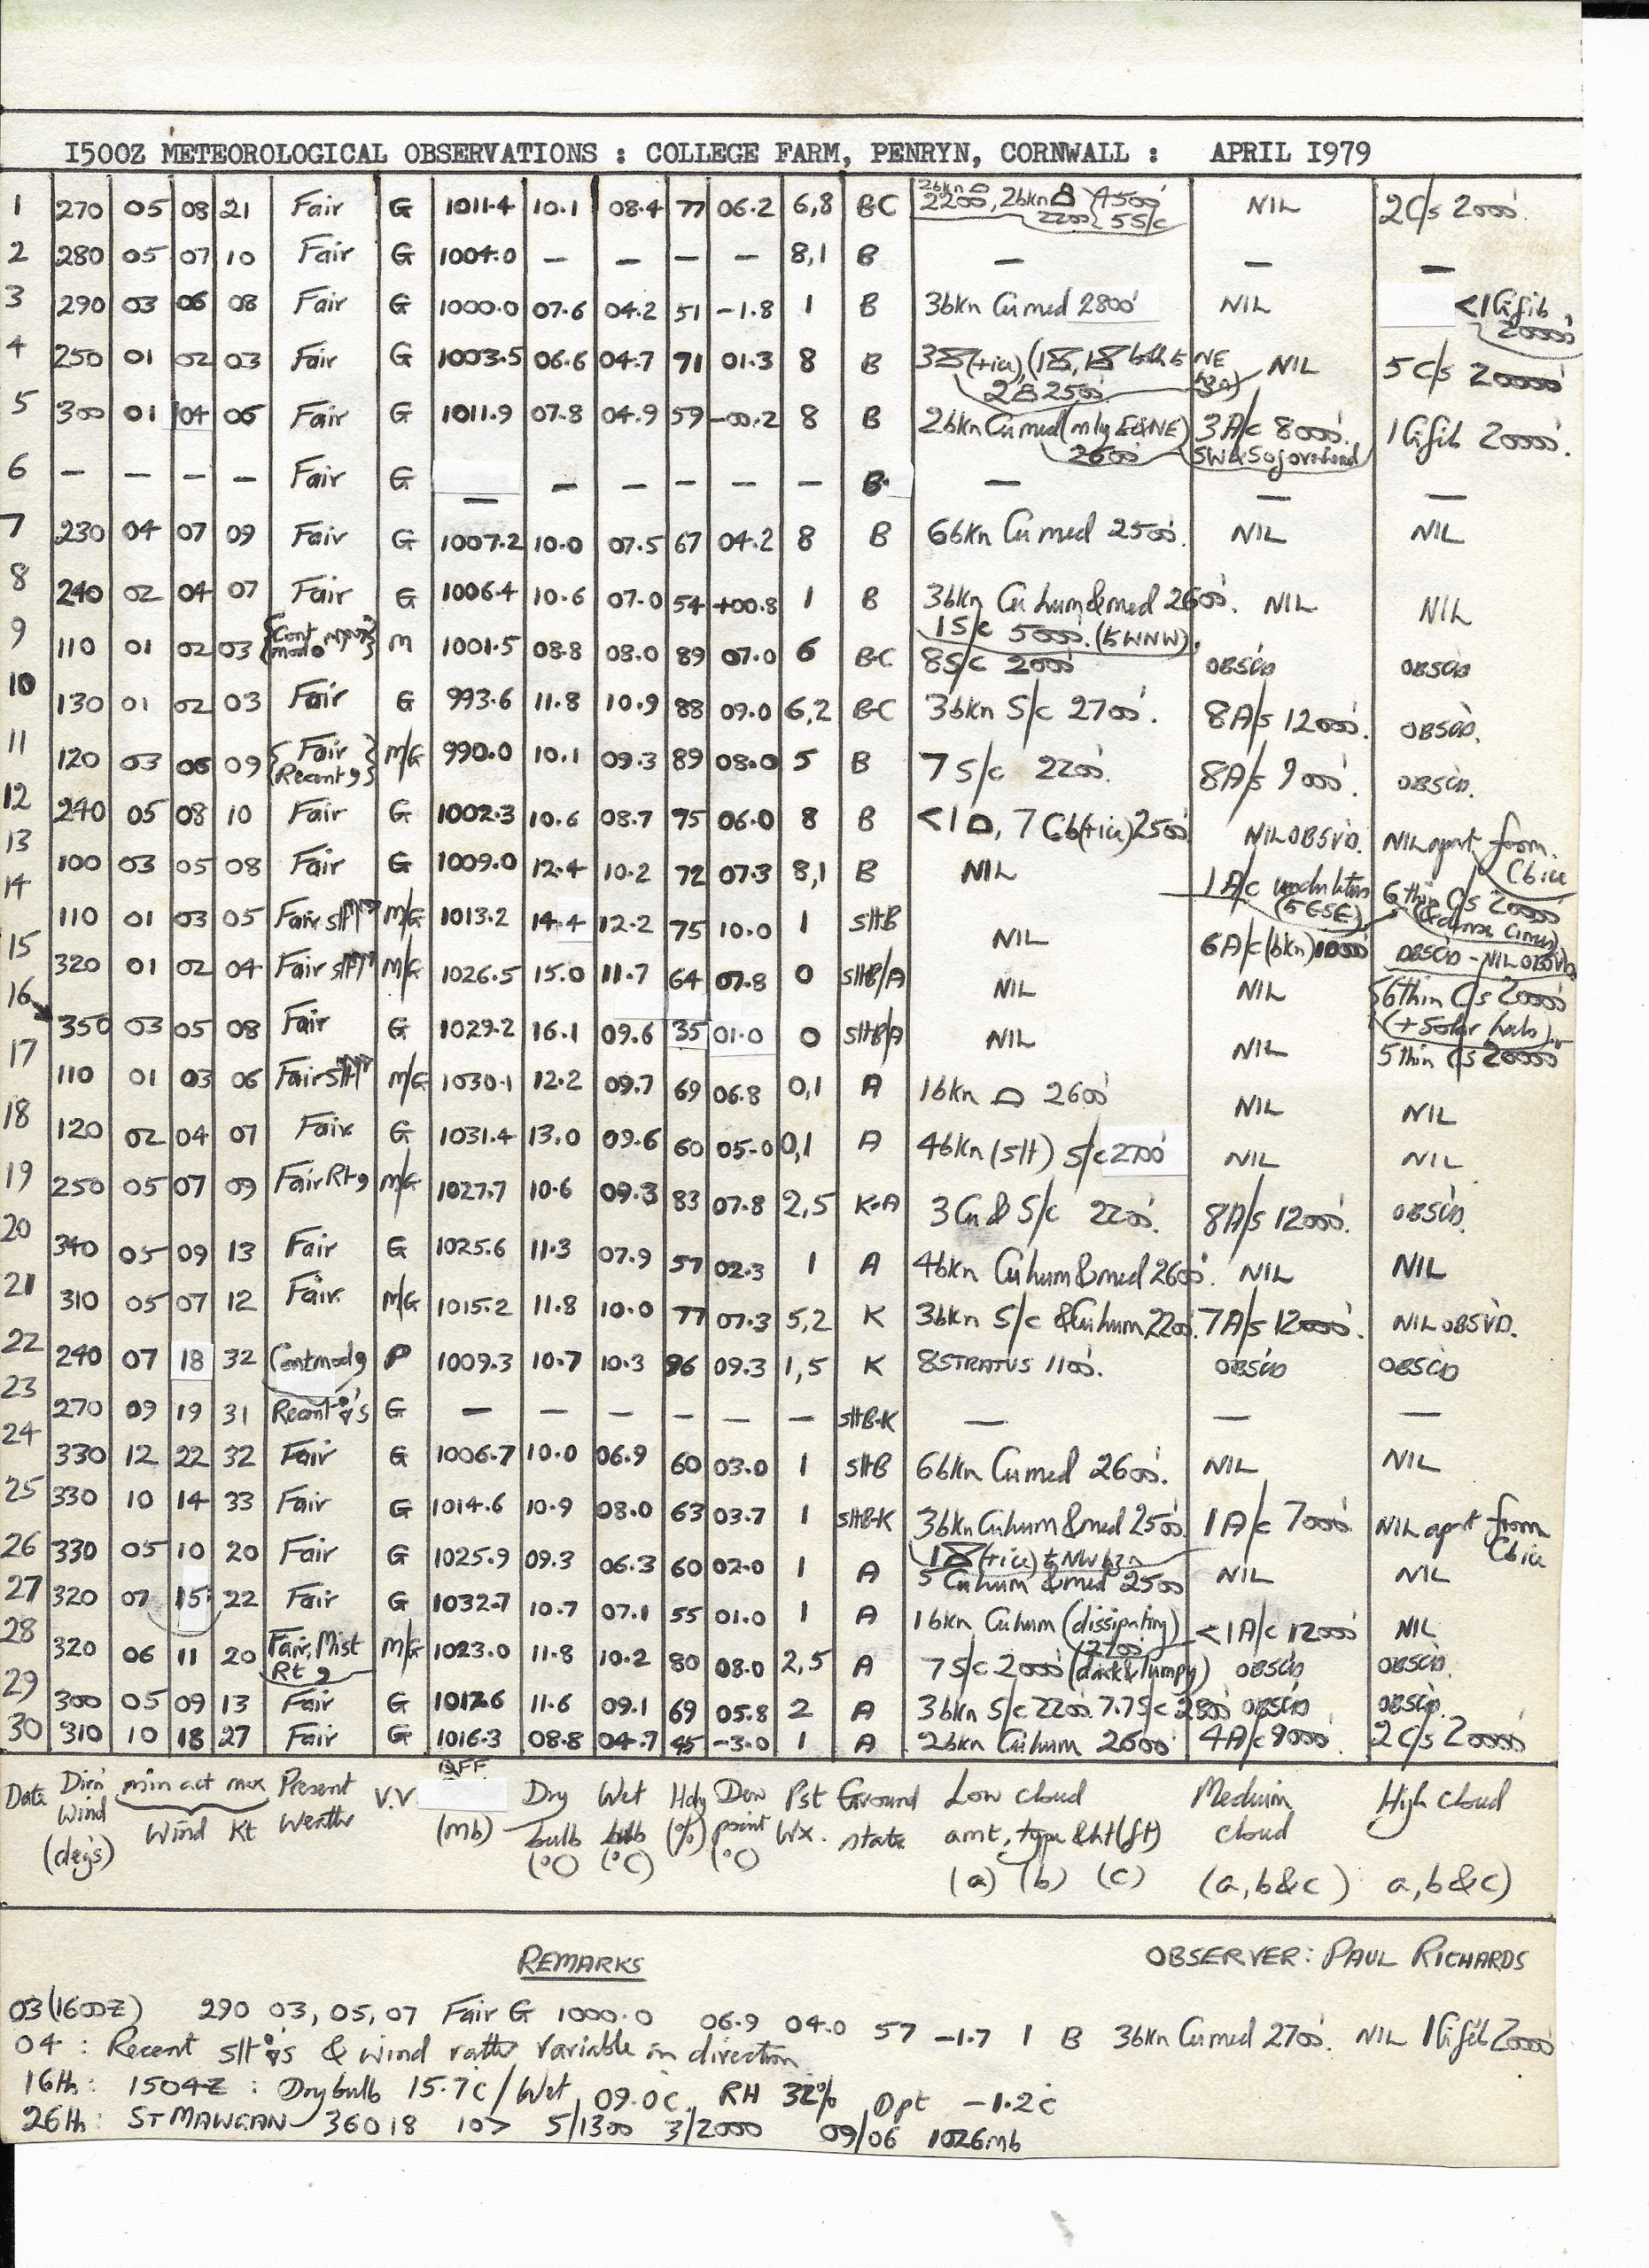 1500Z METEOROLOGICAL OBSERVATIONS : COLLEGE FARM, PENRYN, CORNWALL : APRIL 1979
1 270 05 08 21 Fair G 1011.4 10.1 08.4 77 06.2 6,8 B-C 2bkn 2200', 2bkn 2200' 4500' 5 S/c NIL 2 C/s 20000'.
2 280 05 07 10 Fair G 1004.0 — — — — 8,1 B — — —
3 290 03 06 08 Fair G 1000.0 07.6 04.2 51 -1.8 1 B 3bkn Cu med 2800' NIL <1 Ci fib, 20000'
4 250 01 02 03 Fair G 1003.5 06.6 04.7 71 01.3 8 B 3 (+ice), (1, 1 both to NE hzn) 2 2500' NIL 5 C/s 20000'
5 300 01 04 06 Fair G 1011.9 07.8 04.9 59 -00.2 8 B 2bkn Cu med (mly E&NE) 2600' 3 A/c 8000'. SW & So of overhead 1 Ci fib 20000'.
6 — — — — Fair G — — — — — — B — — —
7 230 04 07 09 Fair G 1007.2 10.0 07.5 67 04.2 8 B 6bkn Cu med 2500'. NIL NIL
8 240 02 04 07 Fair G 1006.4 10.6 07.0 54 +00.8 1 B 3bkn Cu hum & med 2600'. 1 S/c 5000'. (to WNW). NIL NIL
9 110 01 02 03 Cont M 1001.5 08.8 08.0 89 07.0 6 B-C 8 S/c 2000' OBSC'D OBSC'D
10 130 01 02 03 Fair G 993.6 11.8 10.9 88 09.0 6,2 B-C 3bkn S/c 2700'. 8 A/s 12000'. OBSC'D.
11 120 03 06 09 {Fair Recent 9} M/G 990.0 10.1 09.3 89 08.0 5 B 7 S/c 2200'. 8 A/s 9000'. OBSC'D.
12 240 05 08 10 Fair G 1002.3 10.6 08.7 75 06.0 8 B <1, 7 Cb (+ice) 2500' NIL OBSV'D. NIL apart from Cb ice
13 100 03 05 08 Fair G 1009.0 12.4 10.2 72 07.3 8,1 B NIL 1 A/c undulatus (to ESE) 6 thin C/s 20000' (& dense cirrus)
14 110 01 03 05 Fair slt M/G 1013.2 14.4 12.2 75 10.0 1 sltB NIL 6 A/c (bkn) 10000' OBSC'D - NIL OBSV'D
15 320 01 02 04 Fair slt M/G 1026.5 15.0 11.7 64 07.8 0 sltB/A NIL NIL 6 thin C/s 20000' (+ solar halo)
16 350 03 05 08 Fair G 1029.2 16.1 09.6 35 01.0 0 sltB/A NIL NIL 5 thin Cs 20000'
17 110 01 03 06 Fair slt M/G 1030.1 12.2 09.7 69 06.8 0,1 A 1bkn 2600' NIL NIL
18 120 02 04 07 Fair G 1031.4 13.0 09.6 60 05.0 0,1 A 4bkn (slt) S/c 2700' NIL NIL
19 250 05 07 09 Fair Rt 9 M/G 1027.7 10.6 09.3 83 07.8 2,5 K-A 3 Cu & S/c 2200'. 8 A/s 12000'. OBSC'D.
20 340 05 09 13 Fair G 1025.6 11.3 07.9 57 02.3 1 A 4bkn Cu hum & med 2600'. NIL NIL
21 310 05 07 12 Fair. M/G 1015.2 11.8 10.0 77 07.3 5,2 K 3bkn S/c & Cu hum 2200'. 7 A/s 12000'. NIL OBSV'D.
22 240 07 18 32 Cont mod 9 P 1009.3 10.7 10.3 96 09.3 1,5 K 8 STRATUS 1100'. OBSC'D OBSC'D
23 270 09 19 31 Recent 's G — — — — — — sltB-K — — —
24 330 12 22 32 Fair G 1006.7 10.0 06.9 60 03.0 1 sltB 6bkn Cu med 2600'. NIL NIL
25 330 10 14 33 Fair G 1014.6 10.9 08.0 63 03.7 1 sltB-K 3bkn Cu hum & med 2500'. 1 (+ice) to NW hzn 1 A/c 7000' NIL apart from Cb ice
26 330 05 10 20 Fair G 1025.9 09.3 06.3 60 02.0 1 A 5 Cu hum & med 2500' NIL NIL
27 320 07 15 22 Fair G 1032.7 10.7 07.1 55 01.0 1 A 1bkn Cu hum (dissipating) 2700' <1 A/c 12000' NIL
28 320 06 11 20 Fair, Mist Rt 9 M/G 1023.0 11.8 10.2 80 08.0 2,5 A 7 S/c 2000' (dark & lumpy) OBSC'D OBSC'D.
29 300 05 09 13 Fair G 1012.6 11.6 09.1 69 05.8 2 A 3bkn S/c 2200'. 7.7 S/c 2800' OBSC'D OBSC'D.
30 310 10 18 27 Fair G 1016.3 08.8 04.7 45 -3.0 1 A 2bkn Cu hum 2600' 4 A/c 9000'. 2 C/s 20000'
Date Dir'n Wind (deg's) min act max Wind Kt Present Weather V.V QFF (mb) Dry bulb (°C) Wet bulb (°C) Hdy (%) Dew point (°C) Pst Wx. Ground state Low cloud amt, type & ht (ft) (a) (b) (c) Medium cloud (a, b & c) High cloud a, b & c)
REMARKS
OBSERVER: PAUL RICHARDS
03 (1600Z) 290 03, 05, 07 Fair G 1000.0 06.9 04.0 57 -1.7 1 B 3bkn Cu med 2700'. NIL 1 Ci fib 20000'
04 : Recent slt 's & wind rather variable in direction
16th: 1504Z : Dry bulb 15.7c / Wet 09.0c. RH 32% Dpt -1.2c
26th: ST MAWGAN 36018 10> 5/1300 3/2000 09/06 1026mb